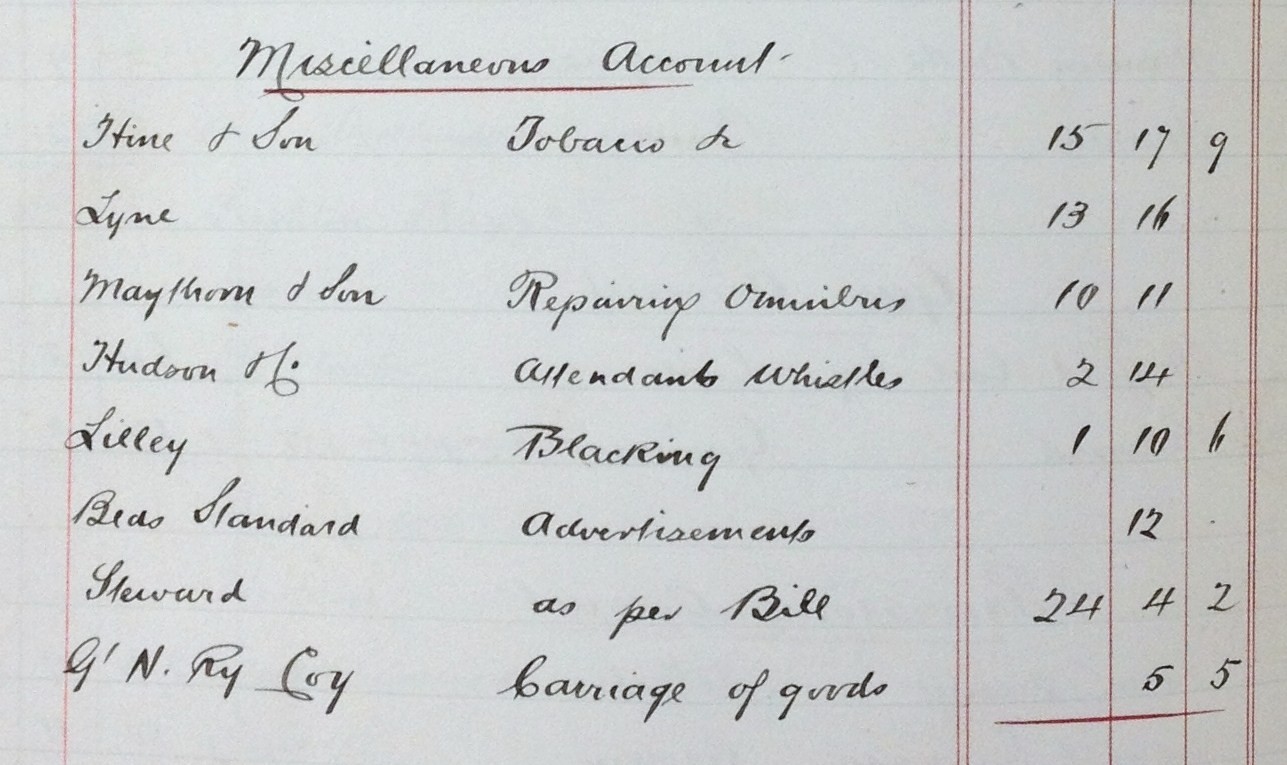 Miscellaneous Account
Hine & Son Tobacco &c 15 17 9
Lyne 13 16
Maythorn & Son Repairing Omnibus 10 11
Hudson & Co. Attendants Whistles 2 14
Lilley Blacking 1 10 6
Beds Standard Advertizements 12
Steward as per Bill 24 4 2
Gt N. Ry Coy Carriage of goods 5 5